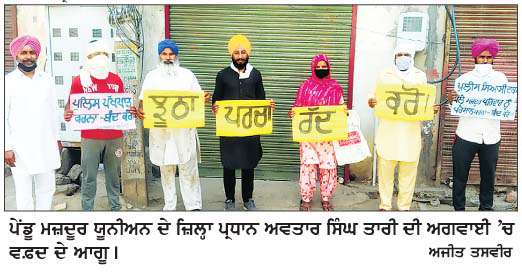 ਪੁਲਿਸ ਪੱਖਪਾਤ
ਕਰਨਾ-ਬੰਦ ਕਰੋ
ਝੂਠਾ
ਪਰਚਾ
ਰੱਦ
ਕਰੋ!
ਪੁਲਿਸ
ਕਰਨਾ-ਬੰਦ ਕਰੋ
ਪੇਂਡੂ ਮਜ਼ਦੂਰ ਯੂਨੀਅਨ ਦੇ ਜ਼ਿਲ੍ਹਾ ਪ੍ਰਧਾਨ ਅਵਤਾਰ ਸਿੰਘ ਤਾਰੀ ਦੀ ਅਗਵਾਈ ’ਚ
ਵਫ਼ਦ ਦੇ ਆਗੂ।
ਅਜੀਤ ਤਸਵੀਰ